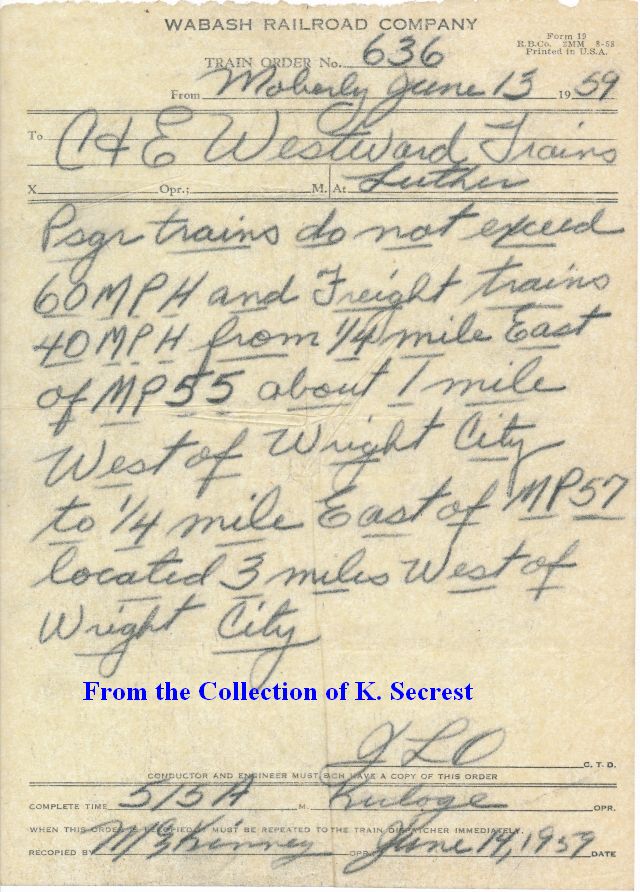 WABASH RAILROAD COMPANY
Form 19
R.B.Co. 2MM 8-58
Printed in U.S.A.
TRAIN ORDER No. 636
From Moberly June 13 1959
To C & E Westward Trains
X Opr.; M. At Luther
Psgr trains do not exceed
60MPH and Freight trains
40MPH from 1/4 mile East
of MP55 about 1 mile
West of Wright City
to 1/4 mile East of MP57
located 3 miles West of
Wright City
From the Collection of K. Secrest
JLO C. T. D.
CONDUCTOR AND ENGINEER MUST EACH HAVE A COPY OF THIS ORDER
COMPLETE TIME 515A M. OPR.
WHEN THIS ORDER IS RECOPIED IT MUST BE REPEATED TO THE TRAIN DISPATCHER IMMEDIATELY.
RECOPIED BY McKinney OPR. June 14, 1959 DATE